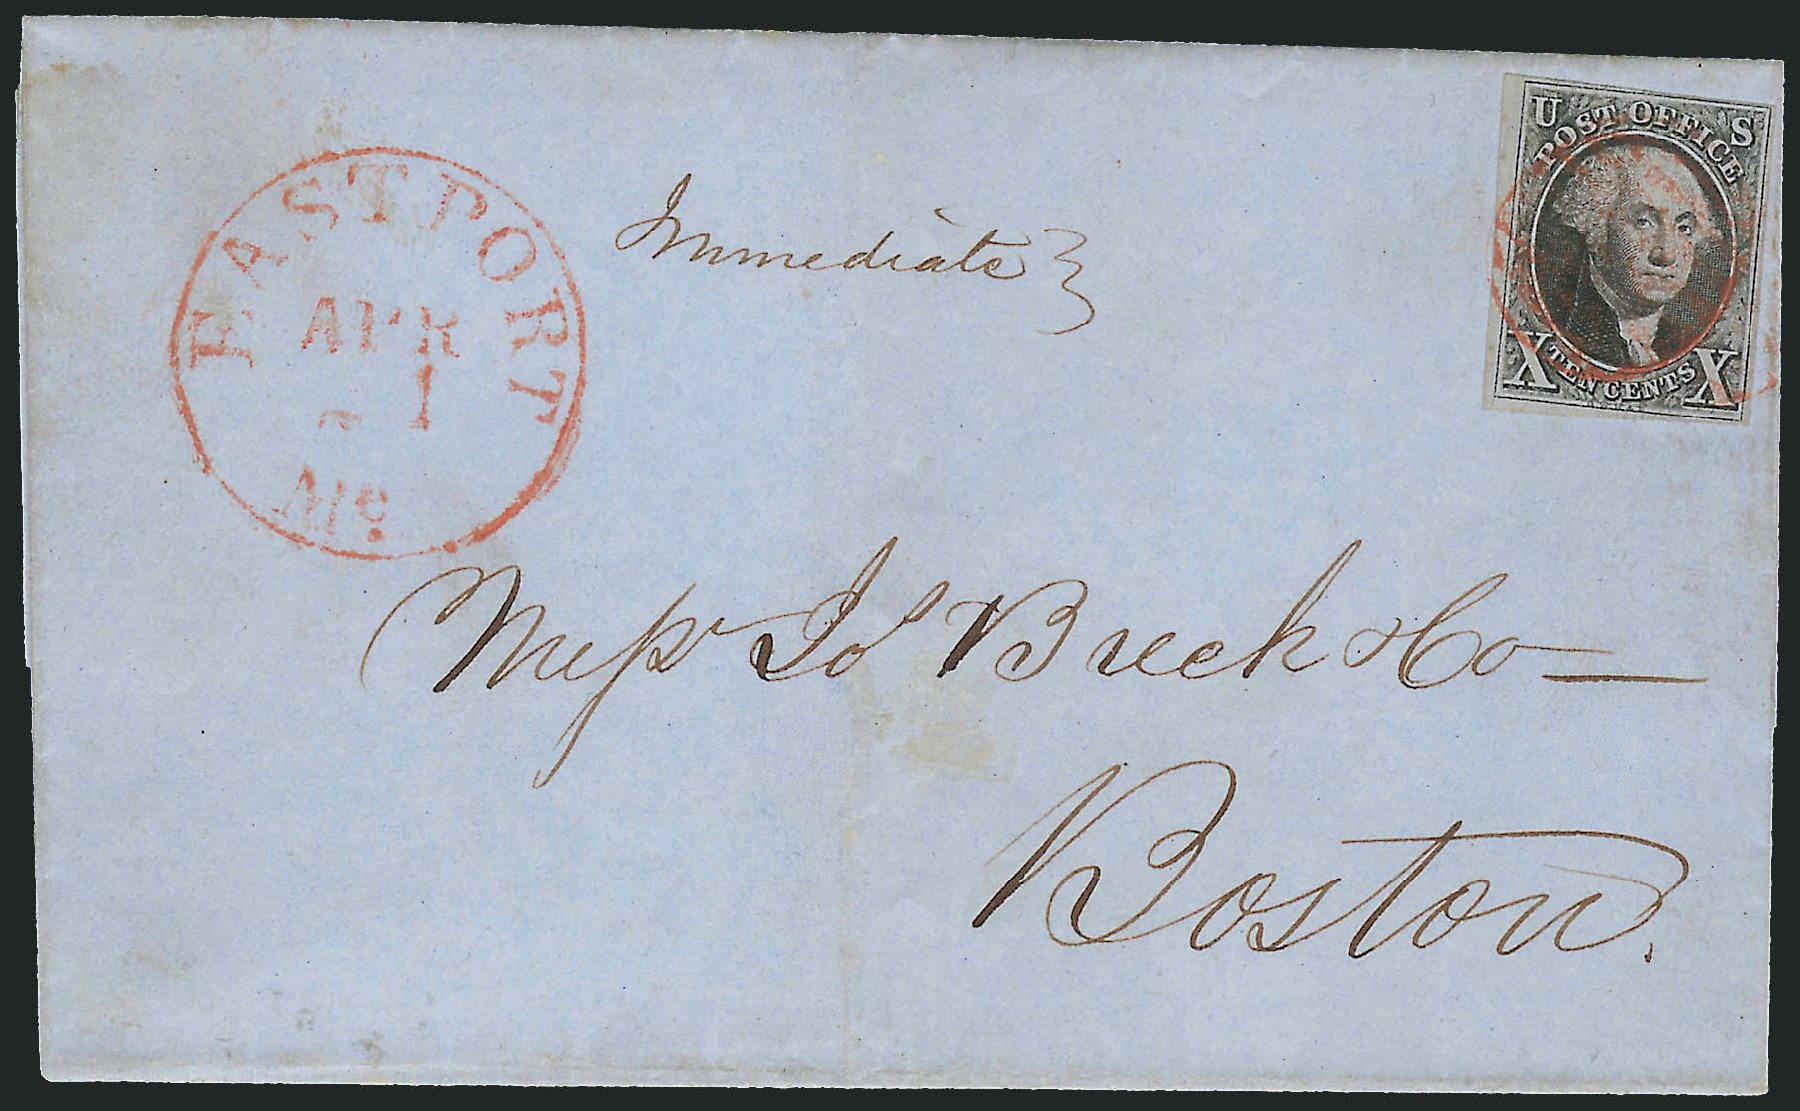 EASTPORT
APR
1
Me.
Immediate
U S
POST OFFICE
X TEN CENTS X
Messrs Jos Breck & Co
Boston.